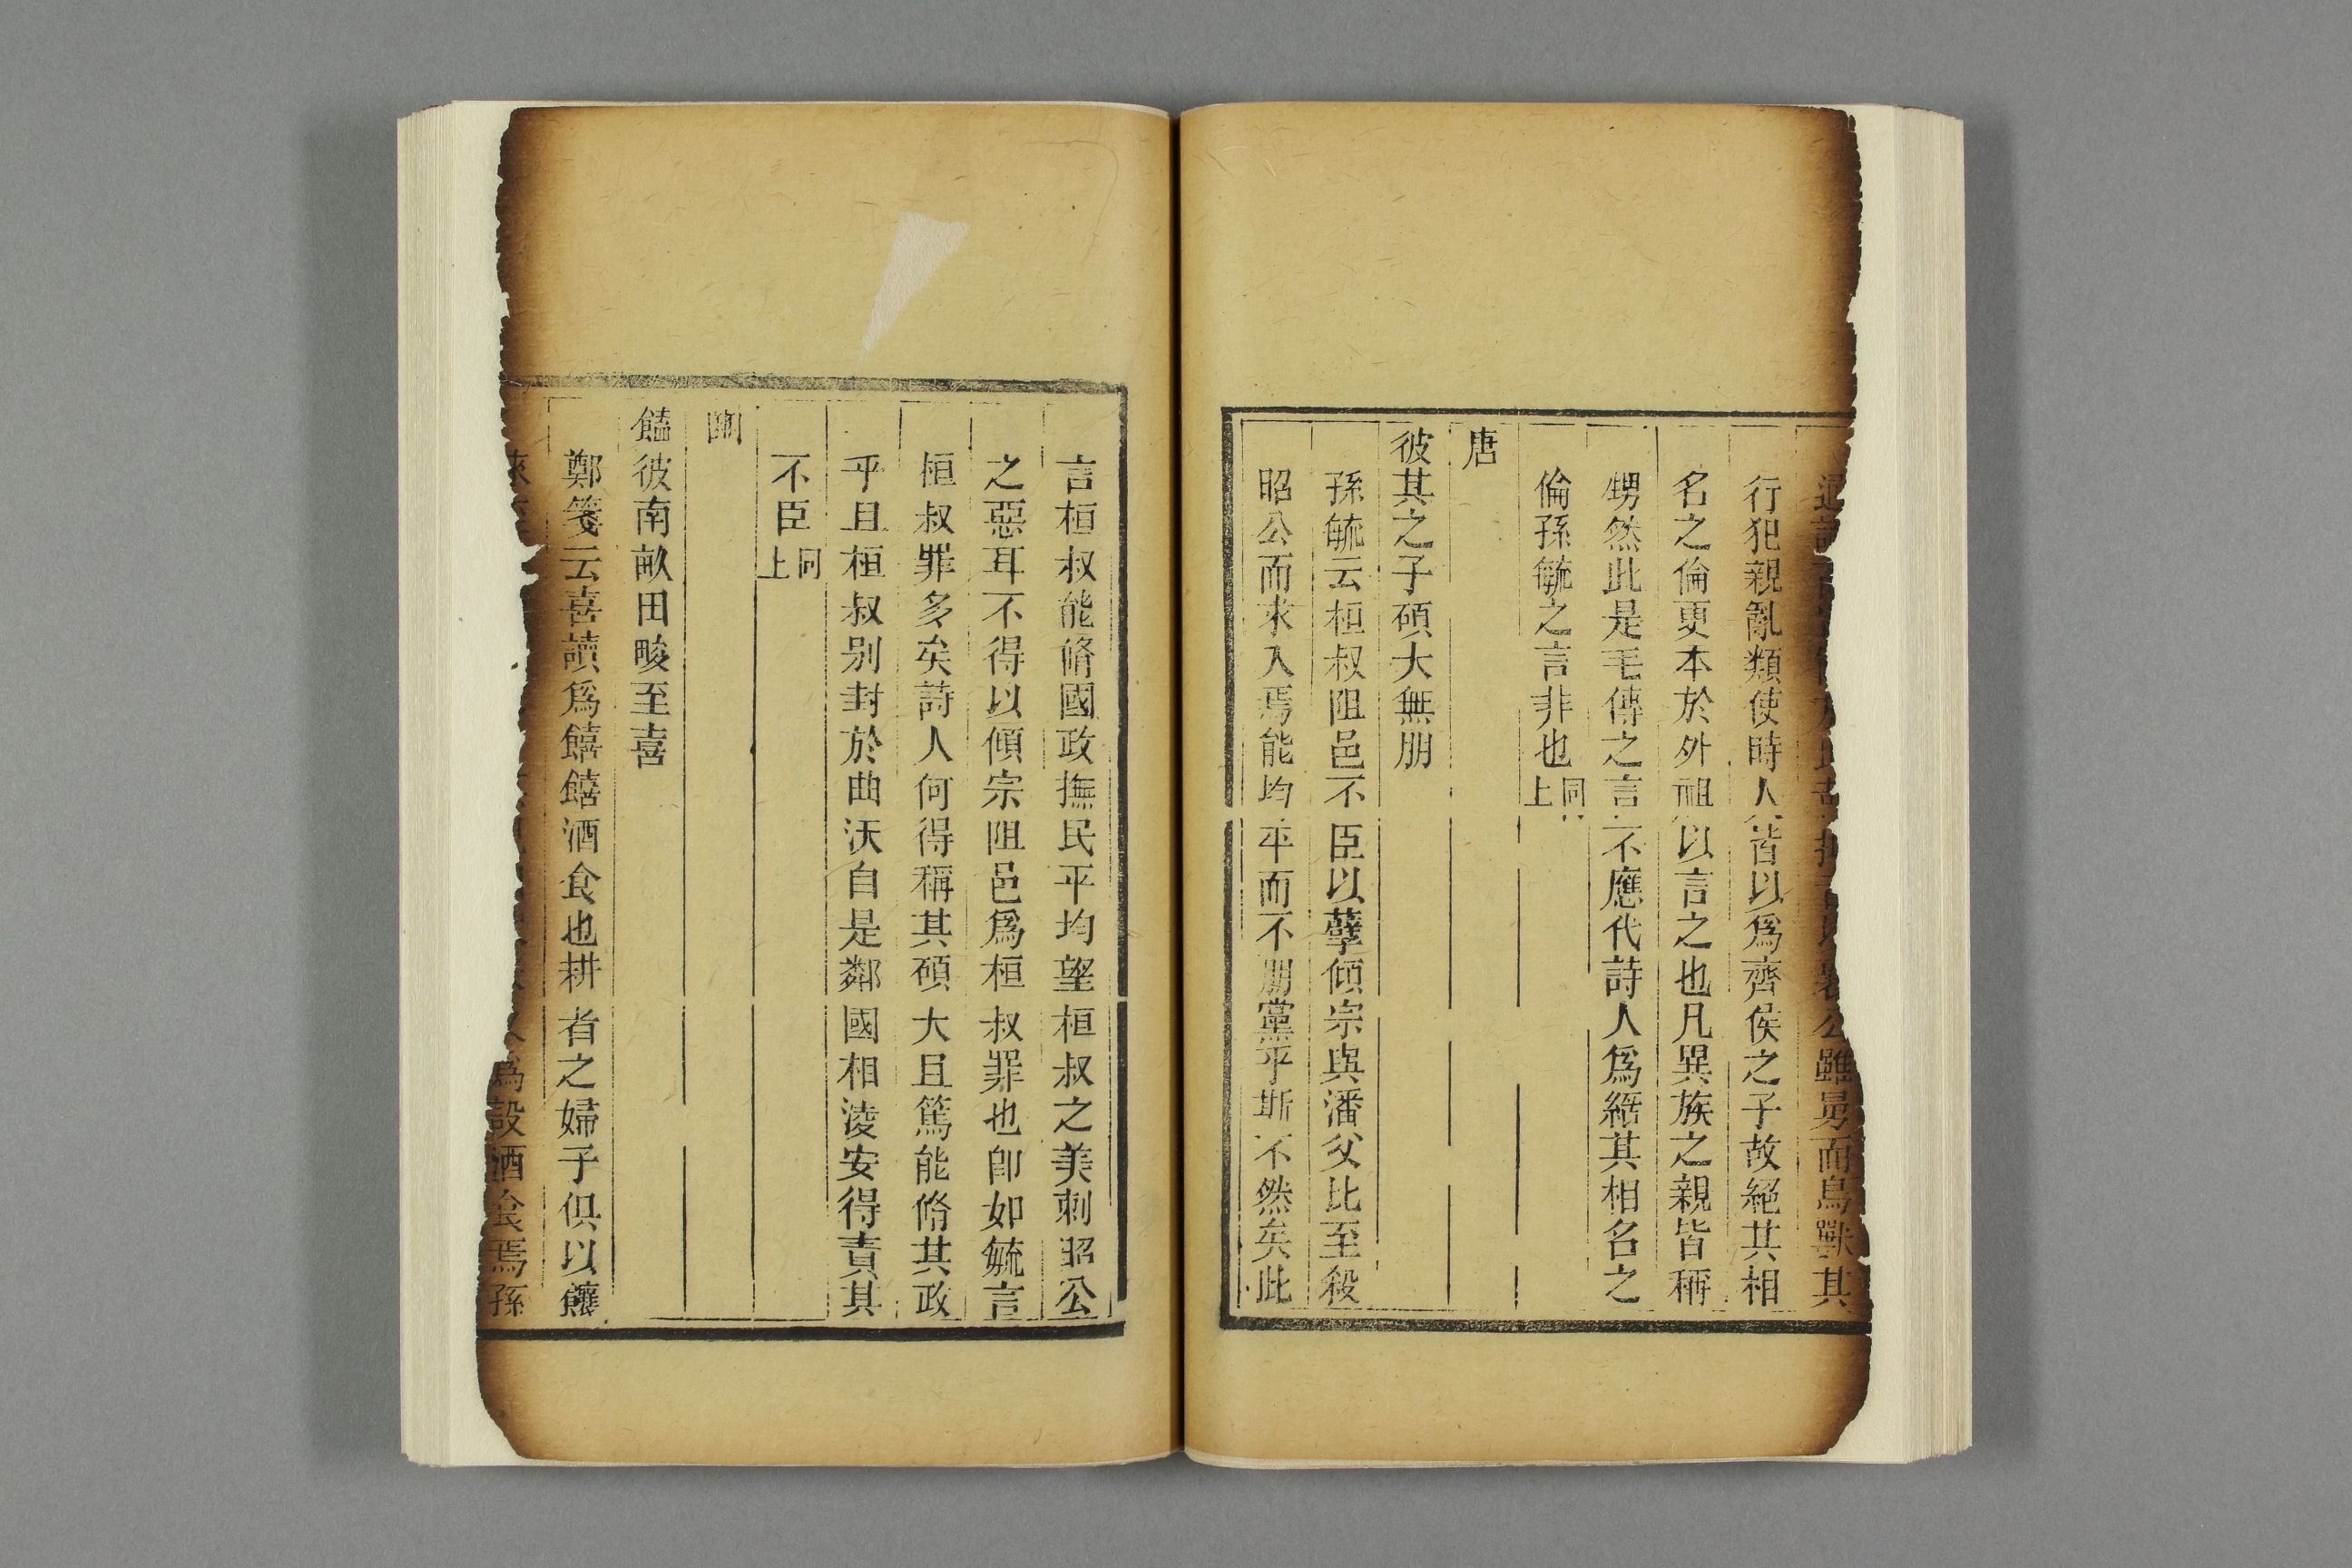 公雖曷而鳥獸其
行犯親亂類使時人皆以為齊侯之子故絕其相
名之倫更本於外祖以言之也凡異族之親皆稱
甥然此是毛傳之言不應代詩人為絕其相名之
倫孫毓之言非也同上
唐
彼其之子碩大無朋
孫毓云桓叔阻邑不臣以孽傾宗與潘父比至殺
昭公而求入焉能均平而不朋黨乎斯不然矣此
言桓叔能脩國政撫民平均望桓叔之美刺昭公
之惡耳不得以傾宗阻邑為桓叔罪也卽如毓言
桓叔罪多矣詩人何得稱其碩大且篤能脩其政
乎且桓叔别封於曲沃自是鄰國相淩安得責其
不臣同上
豳
饁彼南畝田畯至喜
鄭箋云喜讀爲饎饎酒食也耕者之婦子俱以饟
爲設酒食焉孫